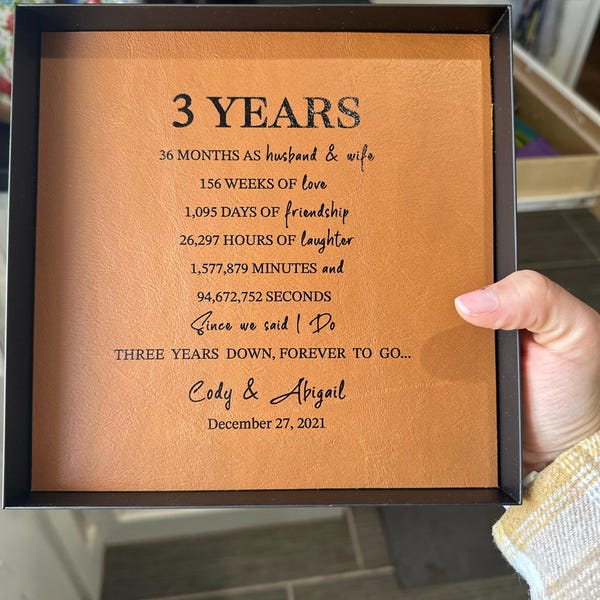 3 YEARS
36 MONTHS AS husband & wife
156 WEEKS OF love
1,095 DAYS OF friendship
26,297 HOURS OF laughter
1,577,879 MINUTES and
94,672,752 SECONDS
Since we said I Do
THREE YEARS DOWN, FOREVER TO GO...
Cody & Abigail
December 27, 2021